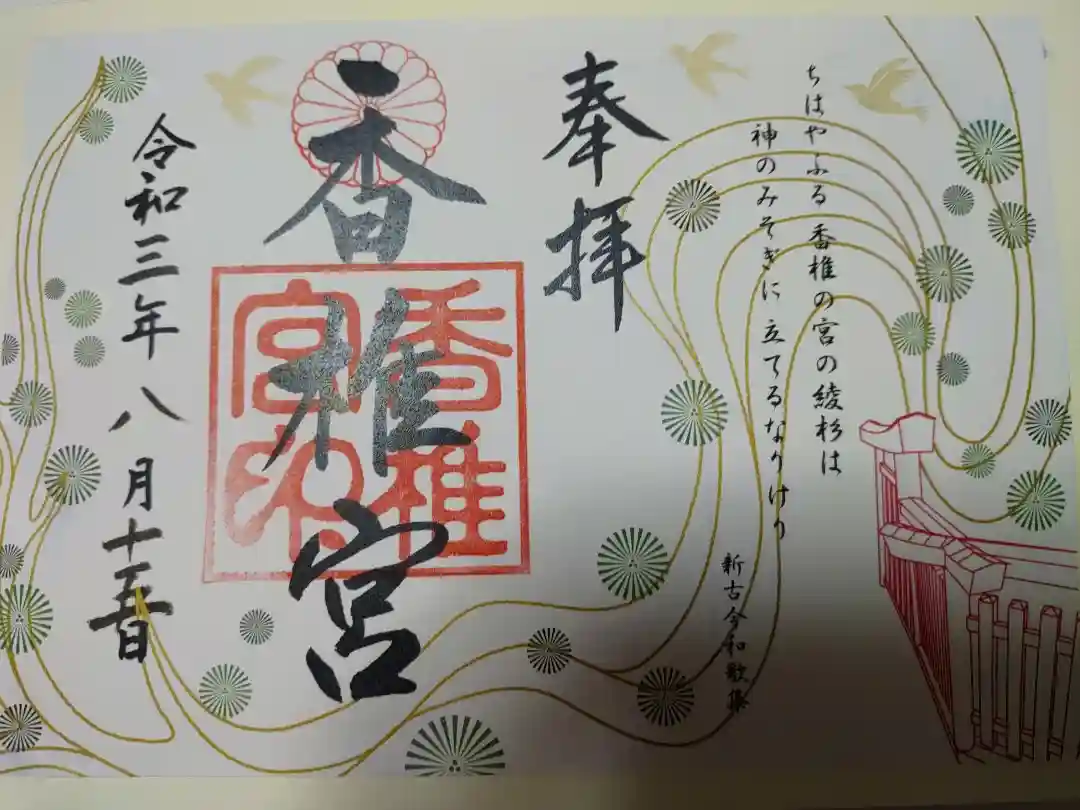 ちはやふる香椎の宮の綾杉は
神のみそぎに立てるなりけり
新古今和歌集
奉拝
香椎宮
香椎宮印
令和三年八月十五日